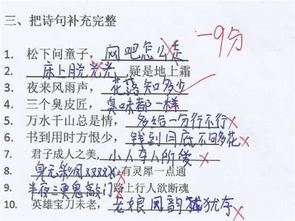 三、把诗句补充完整 -9分
1. 松下问童子，网吧怎么走
2. 床上脱光光，疑是地上霜
3. 夜来风雨声，花落知多少
4. 三个臭皮匠，臭味都一样
5. 万水千山总是情，多给一分行不行
6. 书到用时方恨少，钱到月底不够花
7. 君子成人之美，小人夺人所爱
8. 身无彩凤双飞翼，心有灵犀一点通
9. 半夜三更鬼敲门，路上行人欲断魂
10. 英雄宝刀未老，老娘风韵犹存